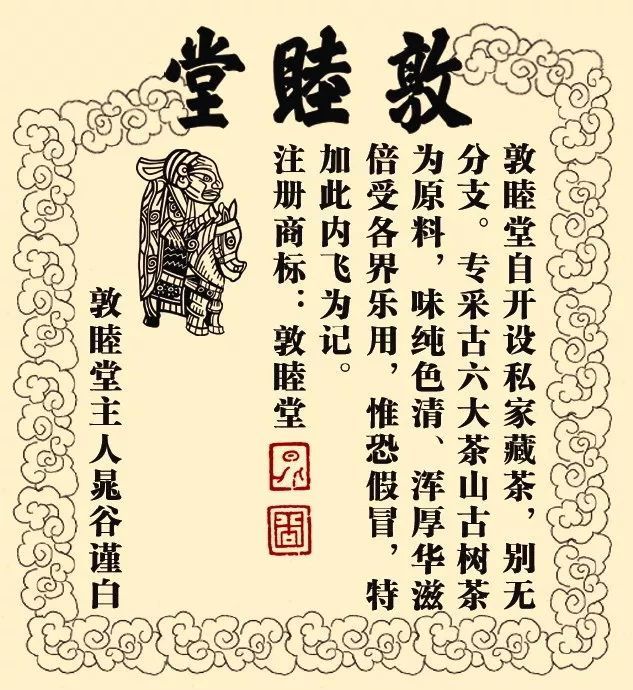 敦睦堂
敦睦堂自开设私家藏茶，别无
分支。专采古六大茶山古树茶
为原料，味纯色清、浑厚华滋
倍受各界乐用，惟恐假冒，特
加此内飞为记。
注册商标：敦睦堂
敦睦堂主人晁谷谨白